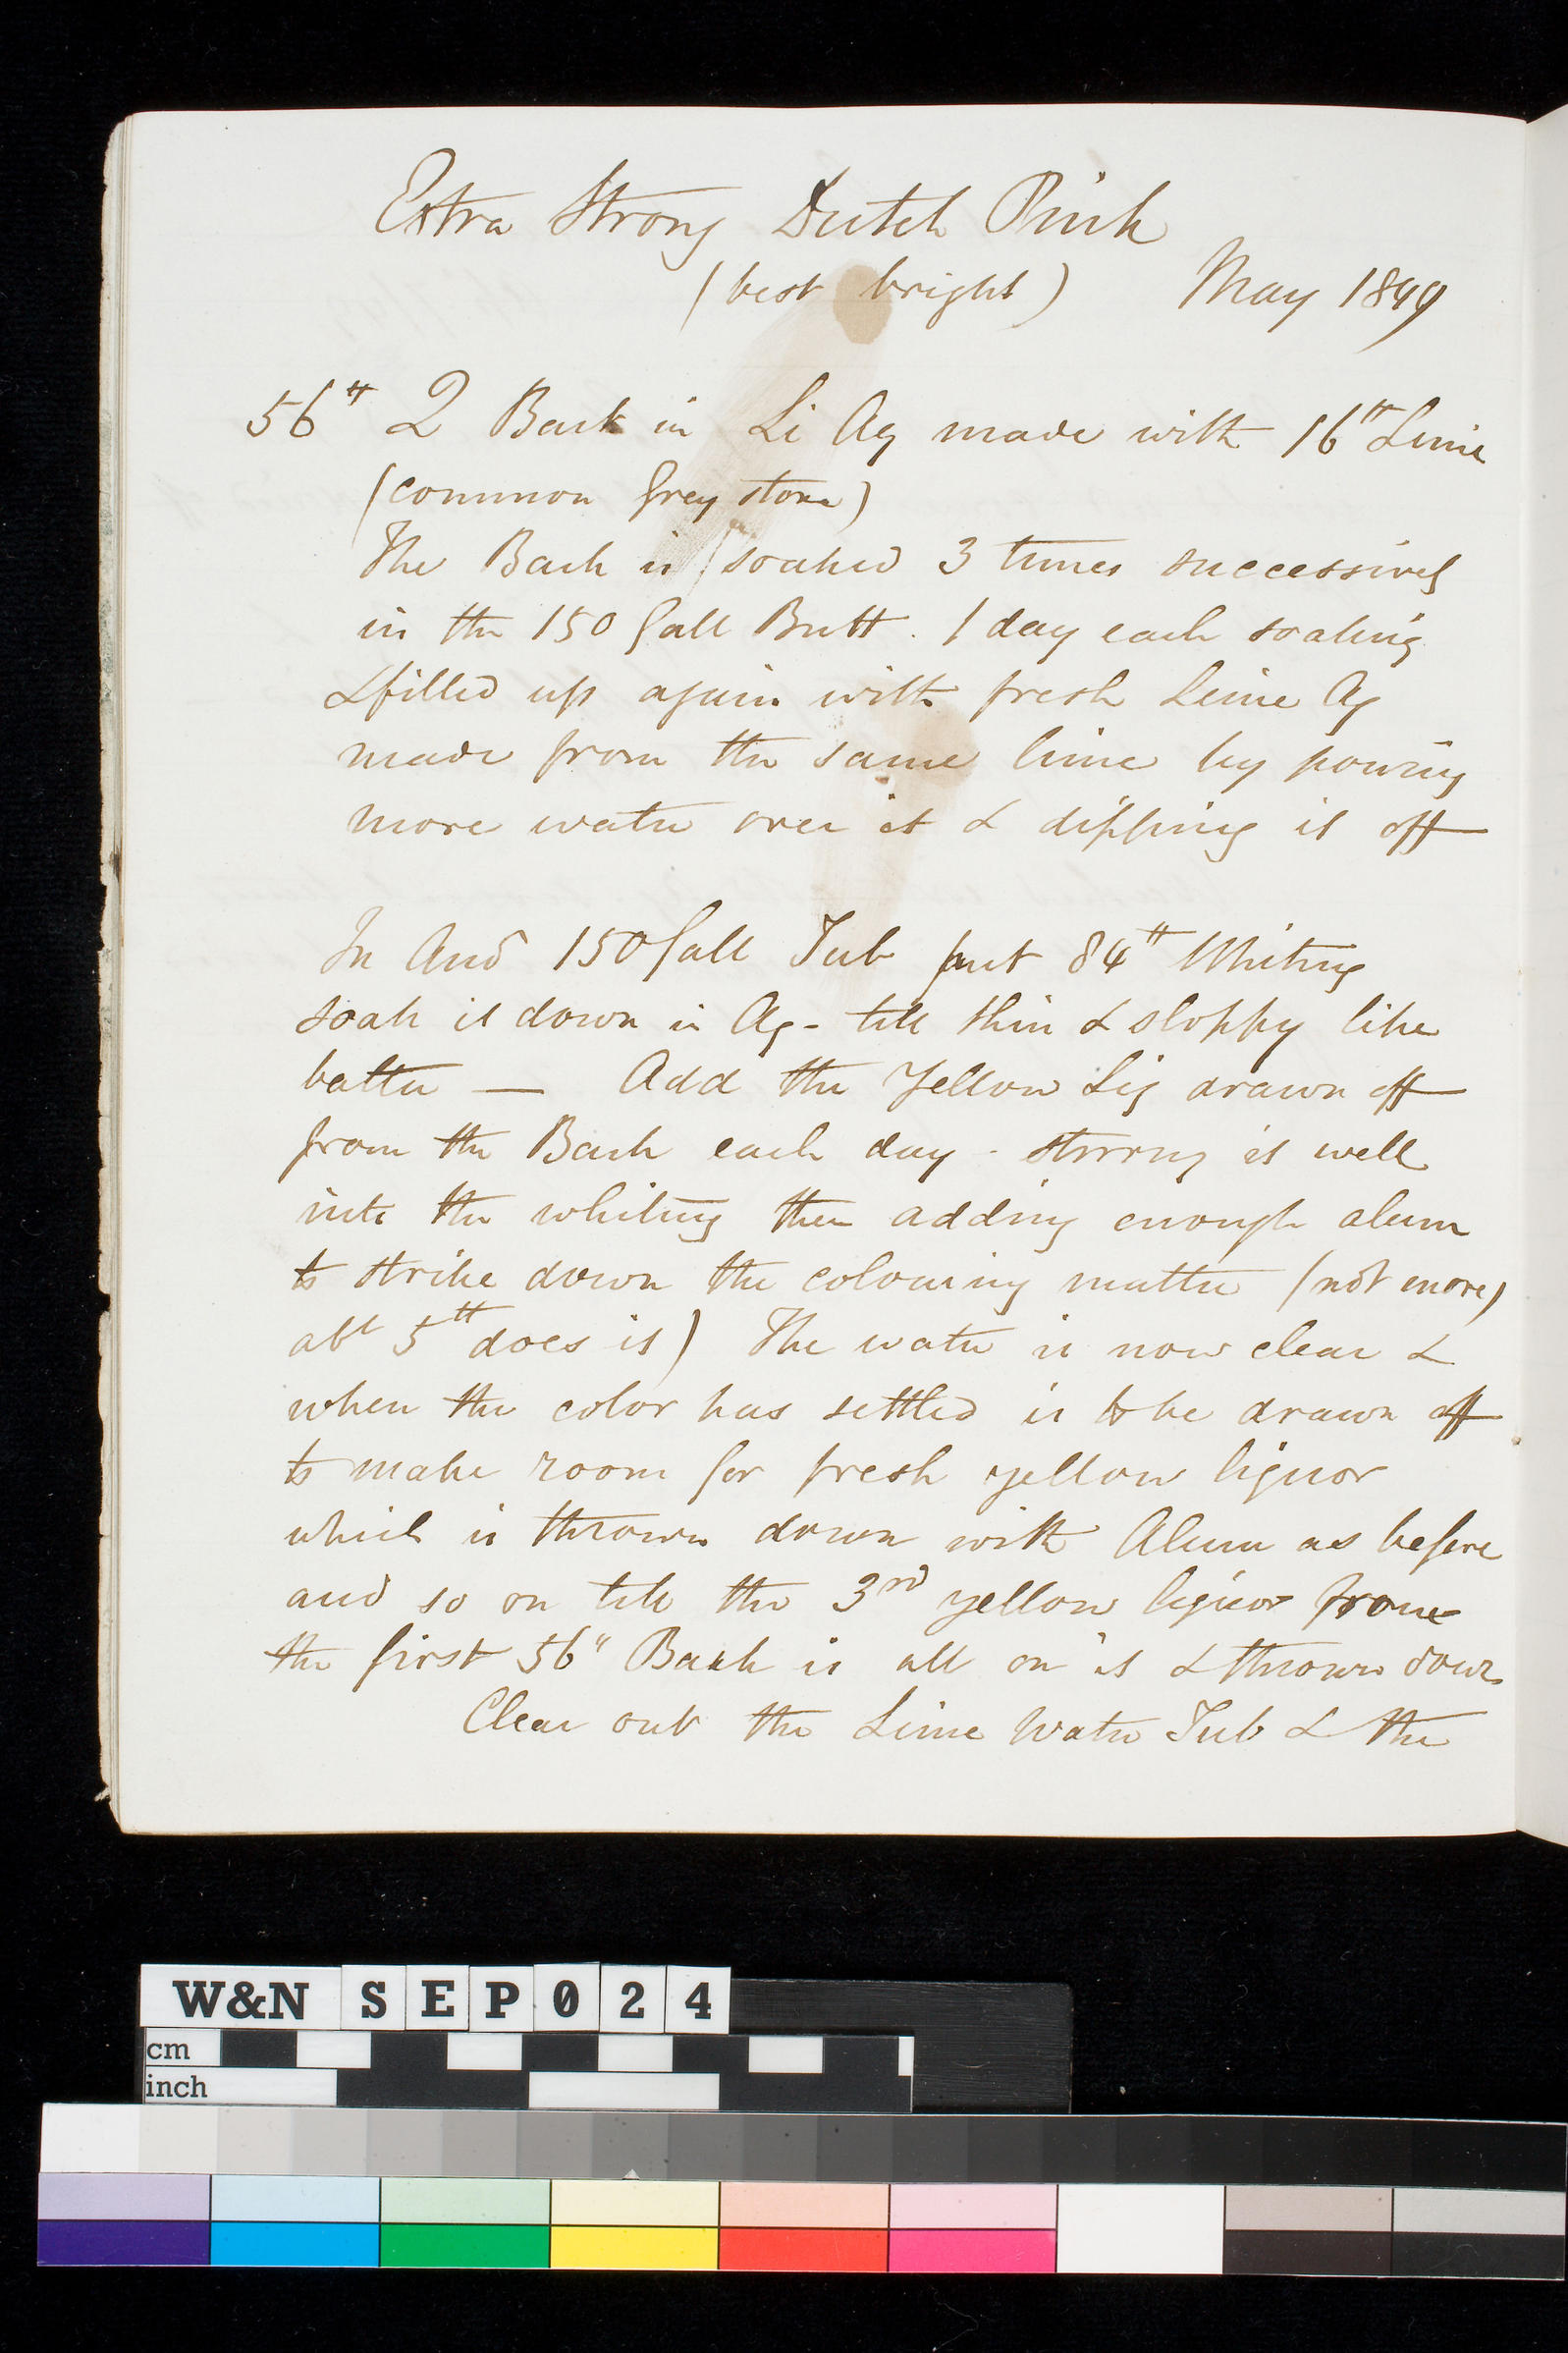 Extra Strong Dutch Pink
(best bright) May 1849
56 ℔ Q Bark in Li Aq made with 16 ℔ Lime
(common Grey stone)
The Bark is soaked 3 times successively
in the 150 Gall Butt. 1 day each soaking
& filled up again with fresh Lime Aq
made from the same lime by pouring
more water over it & dipping it off
In And 150 Gall Tub put 84 ℔ Whiting
soak it down in Aq - till thin & sloppy like
batter — Add the Yellow Liq drawn off
from the Bark each day - stirring it well
into the whiting then adding enough alum
to strike down the colouring matter (not more)
abt 5 ℔ does it) The water is now clear &
when the color has settled is to be drawn off
to make room for fresh yellow liquor
which is thrown down with Alum as before
and so on till the 3rd yellow liquor from
the first 56" Bark is all on it & thrown down
Clear out the Lime Water Tub & the
W&N SEP024
cm
inch